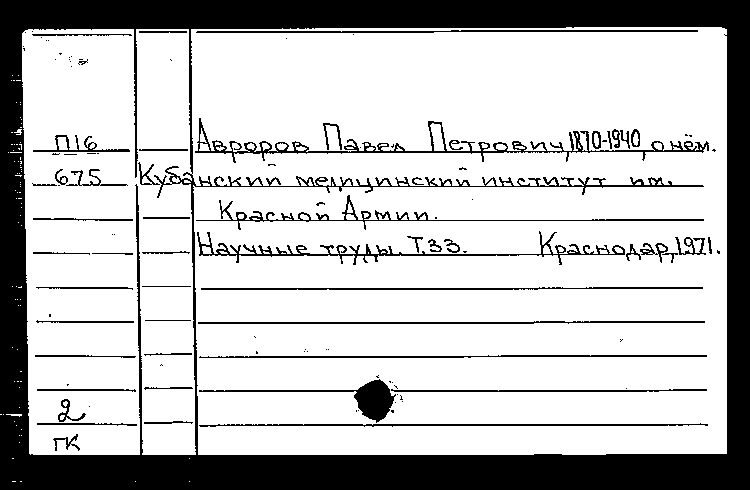 П16 Авроров Павел Петрович, 1870-1940, о нём.
675 Кубанский медицинский институт им.
Красной Армии.
Научные труды. Т.33. Краснодар, 1971.
2
ГК